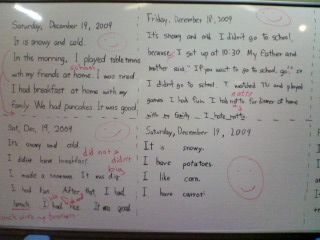 Saturday, December 19, 2009
It is snowy and cold.
In the morning, I played table tennis
school
with my friends at home. I was tired.
I had breakfast at home with my
family. We had pancakes. It was good.
Friday, December 18, 2009
It's snowy and cold. I didn't go to school,
because I got up at 10:30. My father and
mother said "If you want to go to school, go." so
I didn't go to school. I watched TV and played
games. I had fun. I had natto for dinner at home
with my family. I hate natto.
Sat, Dec, 19, 2009
It's snowy and cold. did not
I didn't have breakfast. didn't
I made a snowman. It was big.
I had fun. After that, I had
lunch. I had rice. It was good.
Saturday, December 19, 2009
It is snowy.
I have potatoes.
I like corn.
I have carrot.